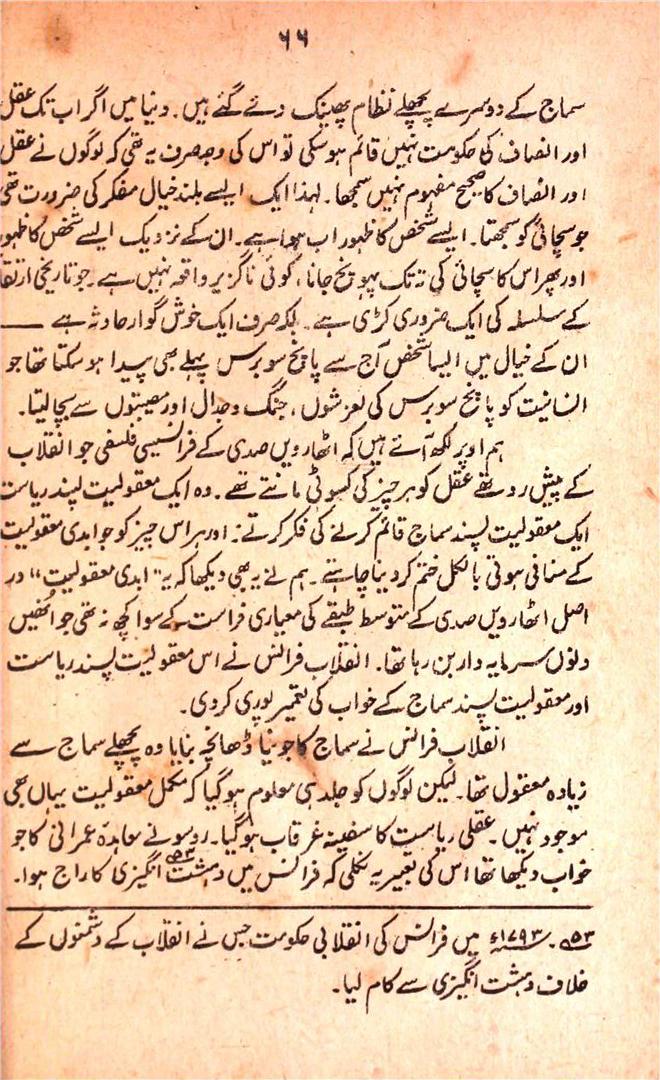 ۶۶
سماج کے دوسرے پچھلے نظام پھینک دئے گئے ہیں۔ دنیا میں اگر اب تک عقل
اور انصاف کی حکومت نہیں قائم ہو سکی تو اس کی وجہ صرف یہ تھی کہ لوگوں نے عقل
اور انصاف کا صحیح مفہوم نہیں سمجھا۔ لہذا ایک ایسے بلند خیال مفکر کی ضرورت تھی
جو سچائی کو سمجھتا۔ ایسے شخص کا ظہور اب ہوا ہے۔ ان کے نزدیک ایسے شخص کا ظہور
اور پھر اس کا سچائی کی تہ تک پہونچ جانا، کوئی ناگزیر واقعہ نہیں ہے۔ جو تاریخی ارتقا
کے سلسلہ کی ایک ضروری کڑی ہے۔ بلکہ صرف ایک خوش گوار حادثہ ہے ——
ان کے خیال میں ایسا شخص آج سے پانچ سو برس پہلے بھی پیدا ہو سکتا تھا جو
انسانیت کو پانچ سو برس کی لغزشوں، جنگ وجدال اور مصیبتوں سے بچا لیتا۔
ہم اوپر لکھ آئے ہیں کہ اٹھارویں صدی کے فرانسیسی فلسفی جو انقلاب
کے پیش رو تھے عقل کو ہر چیز کی کسوٹی مانتے تھے۔ وہ ایک معقولیت پسند ریاست
ایک معقولیت پسند سماج قائم کرنے کی فکر کرتے۔ اور ہر اس چیز کو جو ابدی معقولیت
کے منافی ہوتی بالکل ختم کر دینا چاہتے۔ ہم نے یہ بھی دیکھا کہ یہ "ابدی معقولیت" در
اصل اٹھارویں صدی کے متوسط طبقے کی معیاری فراست کے سوا کچھ نہ تھی جو انھیں
دنوں سرمایہ دار بن رہا تھا۔ انقلاب فرانس نے اس معقولیت پسند ریاست
اور معقولیت پسند سماج کے خواب کی تعمیر پوری کر دی۔
انقلاب فرانس نے سماج کا جو نیا ڈھانچہ بنایا وہ پچھلے سماج سے
زیادہ معقول تھا۔ لیکن لوگوں کو جلد ہی معلوم ہو گیا کہ مکمل معقولیت یہاں بھی
موجود نہیں۔ عقلی ریاست کا سفینہ غرقاب ہو گیا۔ روسو نے معاہدۂ عمرانی کا جو
خواب دیکھا تھا اس کی تعبیر یہ نکلی کہ فرانس میں دہشت انگیزی۵۳ کا راج ہوا۔
۵۳۔ ۱۷۹۳ء میں فرانس کی انقلابی حکومت جس نے انقلاب کے دشمنوں کے
خلاف دہشت انگیزی سے کام لیا۔